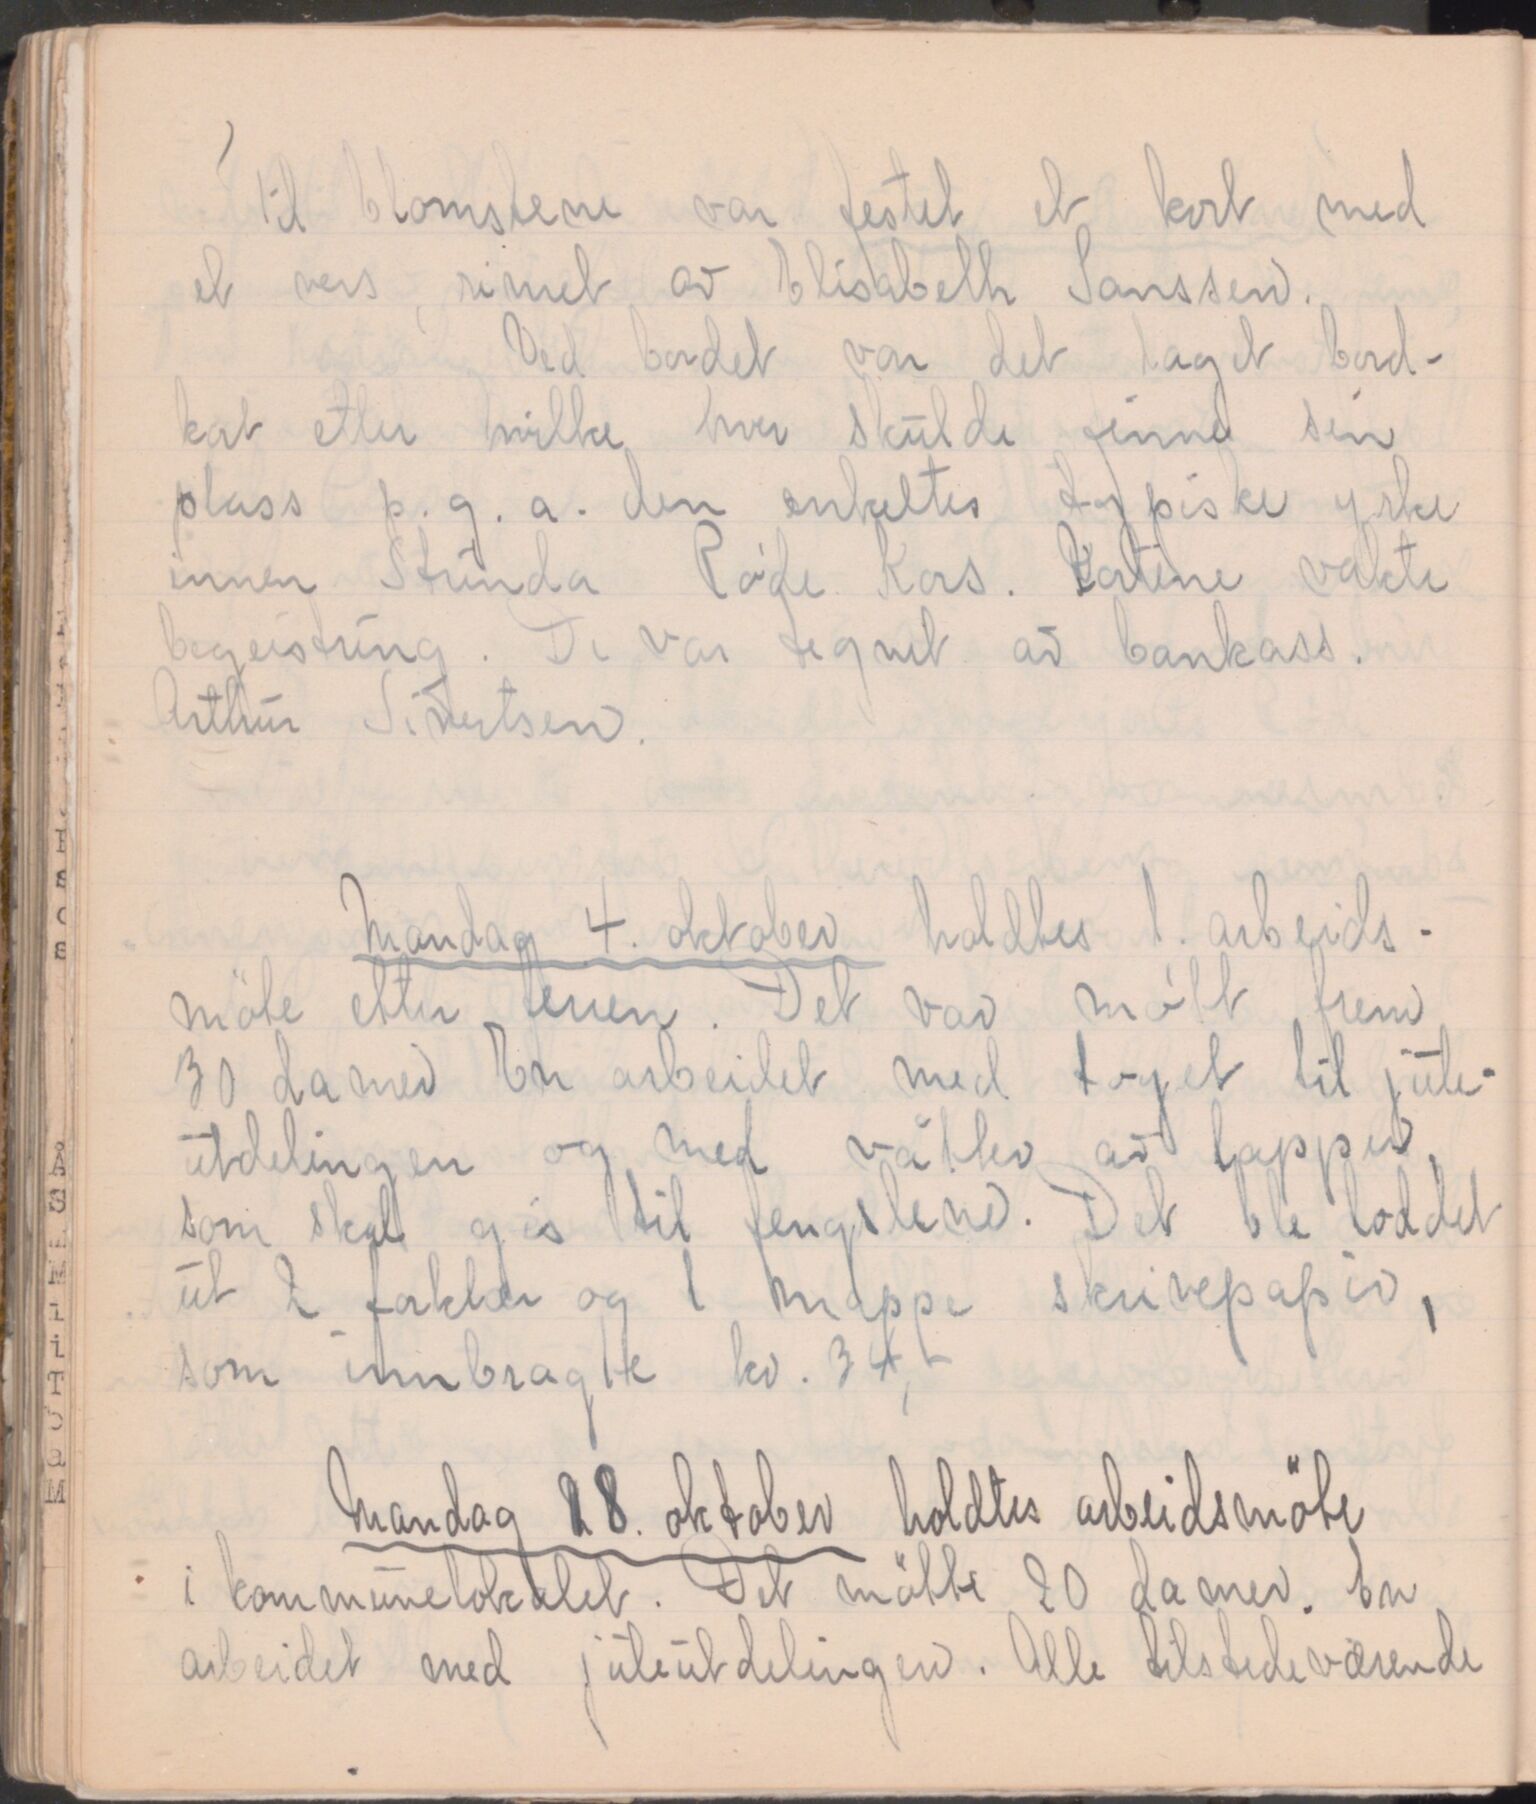 Til blomstene var festet et kort med
et vers, rimet av Elisabeth Janssen.
Ved bordet var det laget bord-
kort etter hvilke hver skulde finne sin
plass p.g.a. den enkeltes typiske yrke
innen Strinda Røde Kors. Kortene vakte
begeistring. De var tegnet av bankass.
Arthur Sivertsen.
Mandag 4. oktober holdtes 1. arbeids-
möte etter ferien. Det var møtt frem
30 damer. En arbeidet med tøyet til jule-
utdelingen og med våtter av lapper,
som skal gis til fengslene. Det ble loddet
ut 2 forklær og 1 mappe skrivepapir,
som innbragte kr. 34,-
Mandag 18. oktober holdtes arbeidsmöte
i kommunelokalet. Det mötte 20 damer. En
arbeidet med juleutdelingen. Alle tilstedeværende